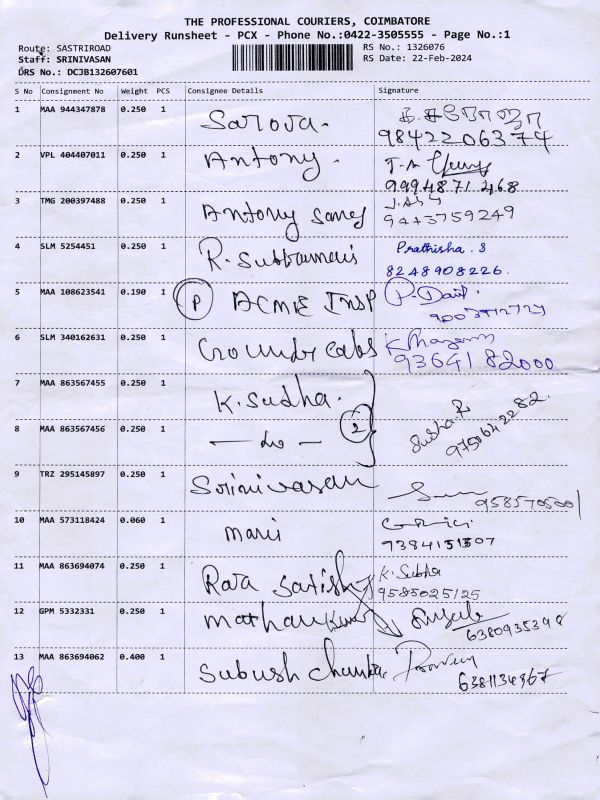 THE PROFESSIONAL COURIERS, COIMBATORE
Delivery Runsheet - PCX - Phone No.:0422-3505555 - Page No.:1
Route: SASTRIROAD
Staff: SRINIVASAN
DRS No.: DCJB132607601
RS No.: 1326076
RS Date: 22-Feb-2024
S No Consignment No Weight PCS Consignee Details Signature
1 MAA 944347878 0.250 1 Saroja.
9842206374
2 VPL 404407011 0.250 1 Antony.
9994871468
3 TMG 200397488 0.250 1 Antony
9443759249
4 SLM 5254451 0.250 1 R. Prathisha. S
8248908226.
5 MAA 108623541 0.190 1 P ACME INSP
6 SLM 340162631 0.250 1 cabs
9364182000
7 MAA 863567455 0.250 1 K. Sudha.
8 MAA 863567456 0.250 1 2
9 TRZ 295145897 0.250 1 Srinivasan
10 MAA 573118424 0.060 1
11 MAA 863694074 0.250 1 Satish K. Subha
9585025125
12 GPM 5332331 0.250 1 Mathan Kumar
6380935398
13 MAA 863694062 0.400 1 Subush